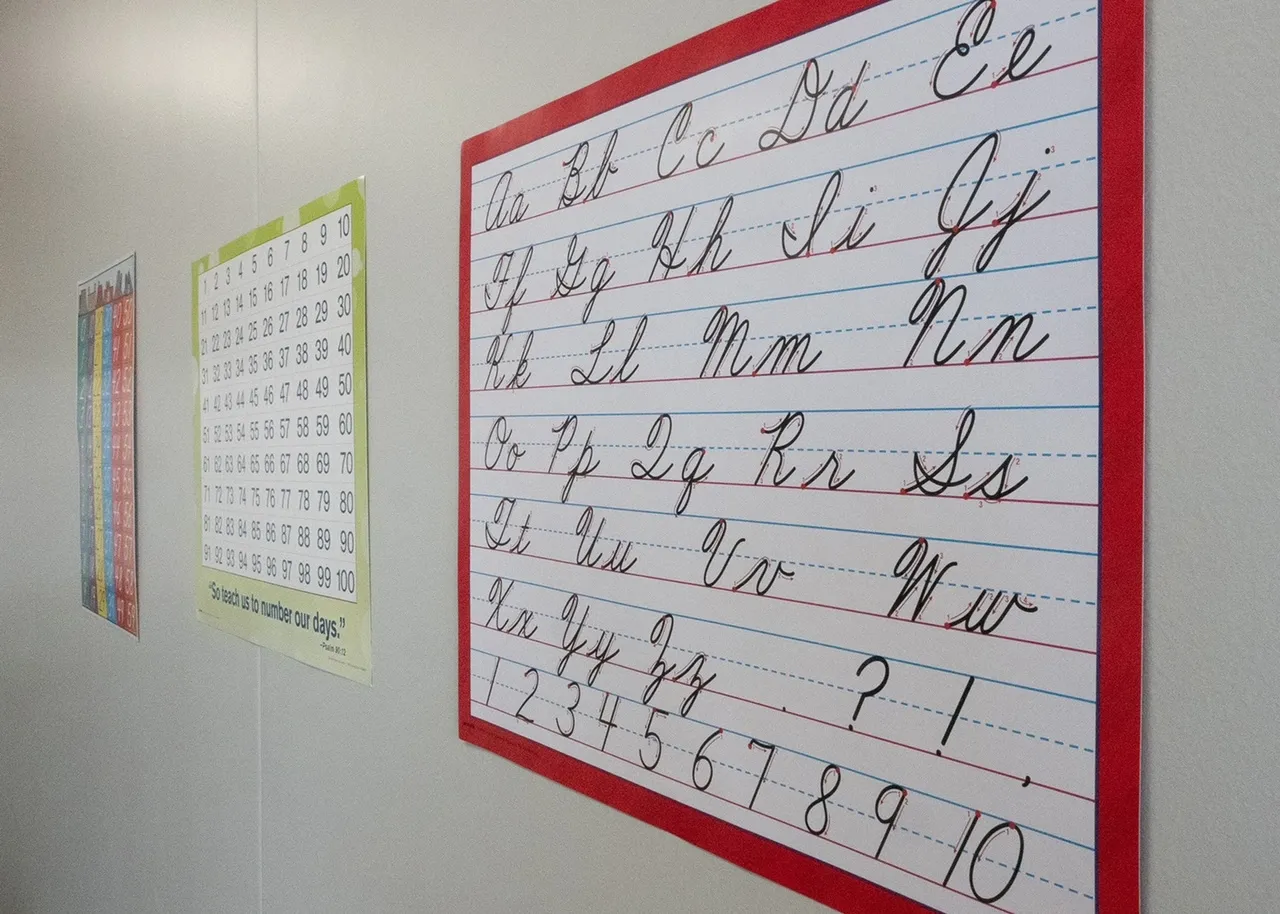 1 2 3 4 5 6 7 8 9 10
11 12 13 14 15 16 17 18 19 20
21 22 23 24 25 26 27 28 29 30
31 32 33 34 35 36 37 38 39 40
41 42 43 44 45 46 47 48 49 50
51 52 53 54 55 56 57 58 59 60
61 62 63 64 65 66 67 68 69 70
71 72 73 74 75 76 77 78 79 80
81 82 83 84 85 86 87 88 89 90
91 92 93 94 95 96 97 98 99 100
"So teach us to number our days."
~Psalm 90:12
Aa Bb Cc Dd Ee
Ff Gg Hh Ii Jj
Kk Ll Mm Nn
Oo Pp Qq Rr Ss
Tt Uu Vv Ww
Xx Yy Zz . ? ! ,
1 2 3 4 5 6 7 8 9 10